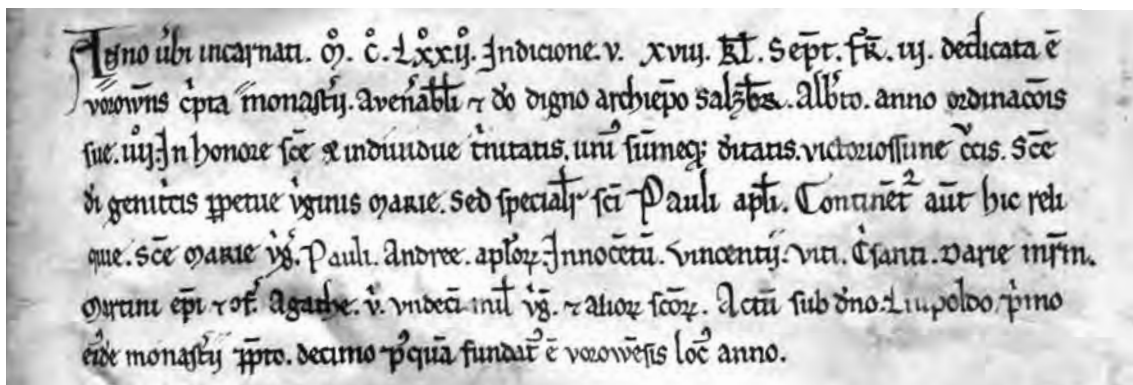 Anno ūbi incarnati. M̊. C̊. Lxx̊ij. Indicione. v. xviij. kł. Sept̄. fr̄. iij. dedicata ē
vorown̄s c̓pta monast̓ij. a ven̄abłi ⁊ d̄o digno archiep̄o Salzb̄. Alb̄to. anno ordinac̄ois
sue. iiij̊. In honore sc̄e ⁊ indiuidue t̓nitatis. uni᾽ sūmeq; d̄itatis. victoriossime c̓cis. Sc̄e
d̄i genit̓cis ꝑpetue v̓ginis Marie. Sed speciałr sc̄i Pauli apłi. Continēt᾽ aūt hic reli
quie. Sc̄e Marie v̓g̓. Pauli. Andree. apłoꝝ. Innocētū. Vincentij. Viti. C̓santi. Darie mr̄m.
Martini ep̄i ⁊ 9f᾽. Agathe. v̓. vndeci̅ mił v̓g̓. ⁊ alioꝝ sc̄oꝝ. Actū sub d̄no. Liupoldo p̓mo
ei᾽de monast̓ij p̄pto. decimo p᾽quā fundat᾽ ē vorowēsis loc᾽ anno.